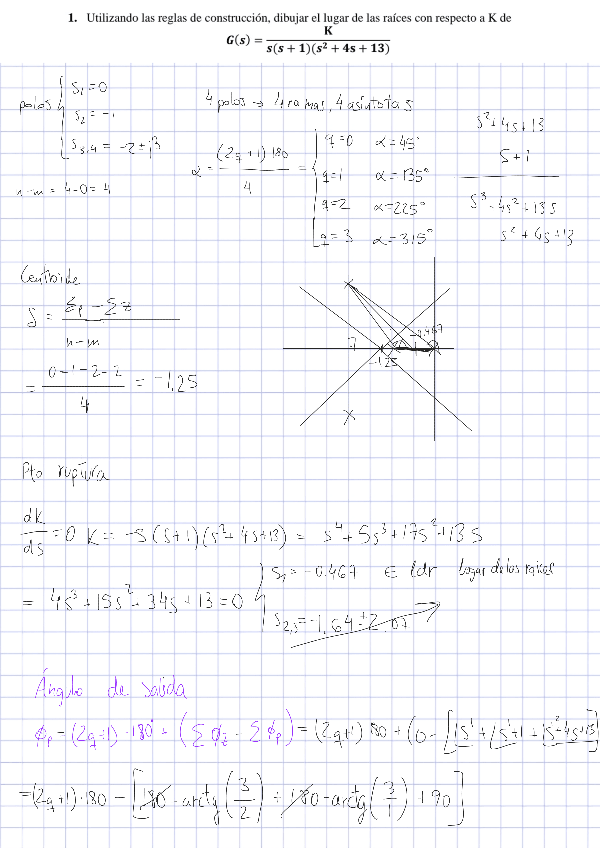 1. Utilizando las reglas de construcción, dibujar el lugar de las raíces con respecto a K de
G(s) = K / s(s + 1)(s² + 4s + 13)
polos { s₁ = 0
s₂ = -1
s₃,₄ = -2 ± j3
n-m = 4-0 = 4
4 polos → 4 ramas, 4 asíntotas
α = (2q+1)·180 / 4 = { q=0 α=45°
q=1 α=135°
q=2 α=225°
q=3 α=315°
s²+4s+13
s+1
s³+4s²+13s
s²+4s+13
Centroide
δ = Σp - Σz / n-m
= 0-1-2-2 / 4 = -1,25
-0.467
-1.25
Pto ruptura
dk/ds = 0 K = -s(s+1)(s²+4s+13) = s⁴+5s³+17s²+13s
= 4s³+15s²+34s+13 = 0 { s₁ = -0.467 ∈ ldr lugar de las raíces
s₂,₃ = -1,64 ± 2,
Ángulo de salida
ϕp = (2q+1)·180° + (Σϕz - Σϕp) = (2q+1)180 + (0 - [1s¹ + 1s¹+1 + 1s²+4s+13]
= (2q+1)·180 - [180 - arctg(3/2) + 180 - arctg(3/1) + 90]